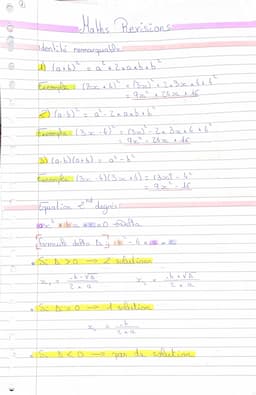 Maths Révisions
Identité remarquable
1) (a+b)² = a² + 2×a×b + b²
Exemple (3x+4)² = (3x)² + 2×3x×4 + 4²
= 9x² + 24x + 16
2) (a-b)² = a² - 2×a×b + b²
Exemple (3x-4)² = (3x)² - 2×3x×4 + 4²
= 9x² - 24x + 16
3) (a-b)(a+b) = a² - b²
Exemple (3x-4)(3x+4) = (3x)² - 4²
= 9x² - 16
Equation 2nd degrés
Formule delta Δ
• Si Δ > 0 → 2 solutions
x₁ = -b-√Δ / 2×a x₂ = -b+√Δ / 2×a
• Si Δ = 0 → 1 solution
x₁ = -b / 2×a
• Si Δ < 0 → pas de solution